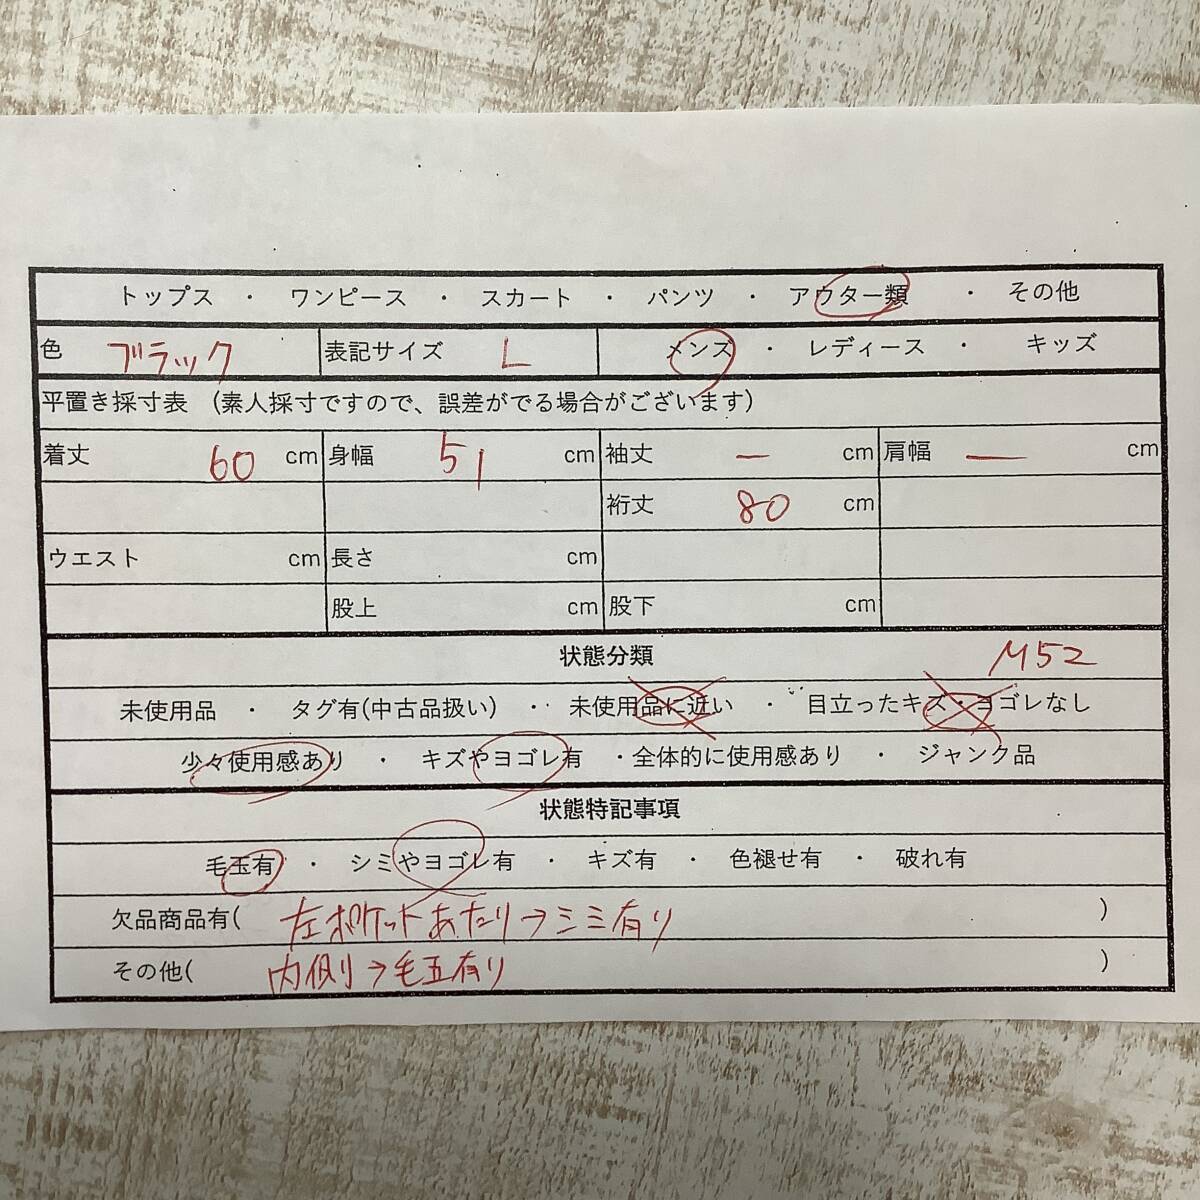 トップス ・ ワンピース ・ スカート ・ パンツ ・ アウター類 ・ その他
色 ブラック 表記サイズ L メンズ ・ レディース ・ キッズ
平置き採寸表 (素人採寸ですので、誤差がでる場合がございます)
着丈 60 cm 身幅 51 cm 袖丈 ー cm 肩幅 ー cm
裄丈 80 cm
ウエスト cm 長さ cm
股上 cm 股下 cm
状態分類 M52
未使用品 ・ タグ有(中古品扱い) ・ 未使用品に近い ・ 目立ったキズ・ヨゴレなし
少々使用感あり ・ キズやヨゴレ有 ・全体的に使用感あり ・ ジャンク品
状態特記事項
毛玉有 ・ シミやヨゴレ有 ・ キズ有 ・ 色褪せ有 ・ 破れ有
欠品商品有( 左ポケットあたり→シミ有り )
その他( 内側→毛玉有り )